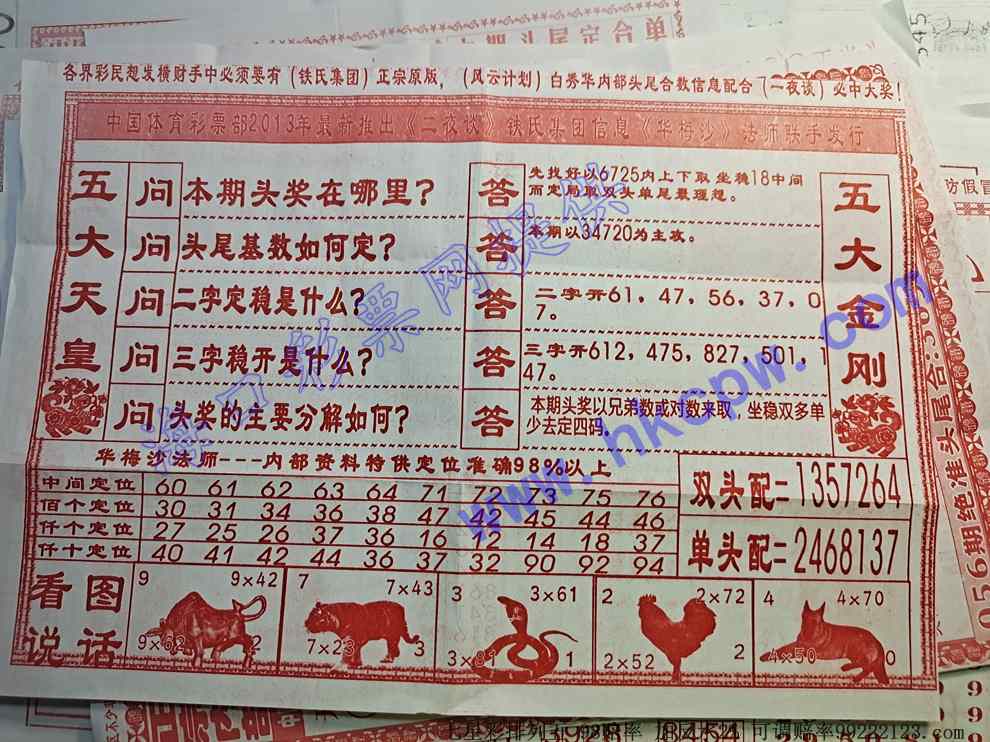 各界彩民想发横财手中必须要有（铁氏集团）正宗原版，（风云计划）白秀华内部头尾合数信息配合（一夜谈）必中大奖！
中国体育彩票部2013年最新推出《二夜谈》铁氏集团信息《华梅沙》法师联手发行
五大天皇
问 本期头奖在哪里？ 答 先找好以6725内上下取坐稳18中间
而定局取双头单尾最理想。
问 头尾基数如何定？ 答 本期以34720为主攻。
问 二字定稳是什么？ 答 二字开61，47，56，37，0
7。
问 三字稳开是什么？ 答 三字开612，475，827，501，1
47。
问 头奖的主要分解如何？ 答 本期头奖以兄弟数或对数来取，坐稳双多单
少去定四码。
五大金刚
华梅沙法师---内部资料特供定位准确98%以上
中间定位 60 61 62 63 64 71 72 73 75 76
佰个定位 30 31 34 36 38 47 42 45 44 46
仟个定位 27 25 26 37 36 16 12 14 18 37
仟十定位 40 41 42 44 36 37 32 90 92 94
双头配=1357264
单头配=2468137
看图说话
9 9×42 9×62 2
7 7×43 7×23 3
3 3×61 3×81 1
2 2×72 2×52 2
4 4×70 4×50 0
海口彩票网提供
www.hkcpw.com
056期绝准头尾合:
防假冒
545
8454
可调赔率99222123.com